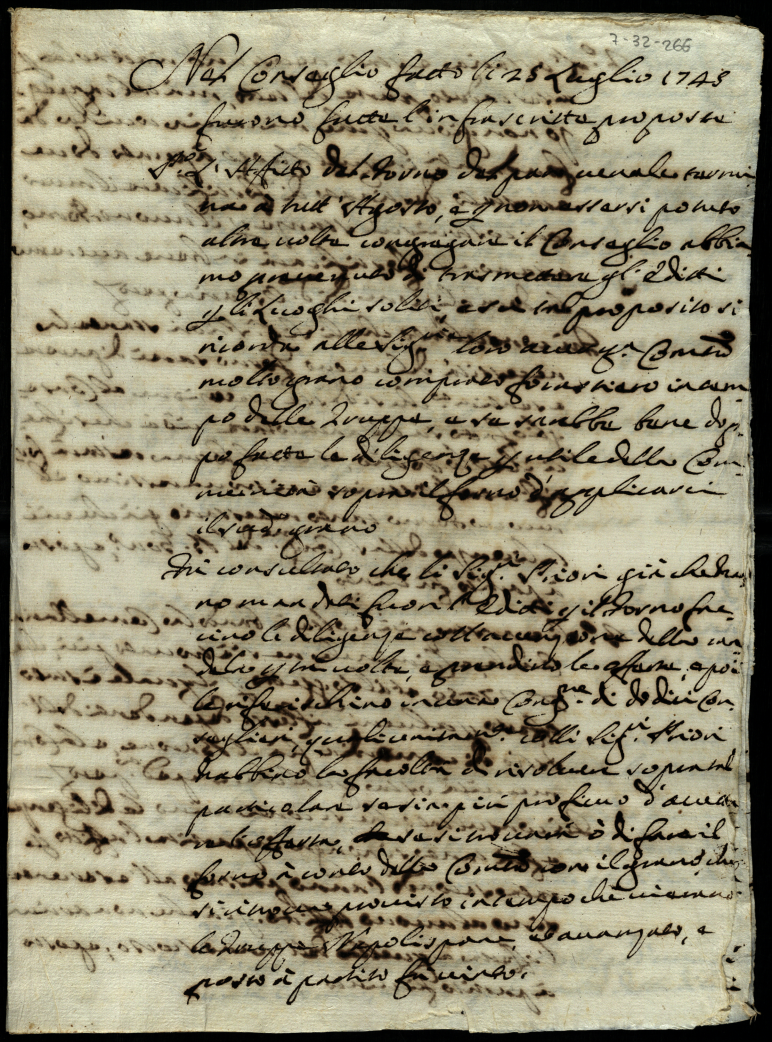 7-32-266
Nel Conseglio fatto li 25 Luglio 1743
furono fatte l'infrascritte proposte
P.a L'Affitto del Forno del pan venale termi
na a tutt'Agosto, e p non essersi potuto
altre volte congregare il Conseglio abbia
mo di trasmettere gl'Editti
p li luoghi soliti, e su tal proposito si
ricorda alle Sig.rie loro Com.tà
molto grano comprato forastiero in tem
po delle Truppe, e se sarebbe bene dop
po fatte le diligenze p utile della Com
munità sopra il forno d'applicarci
il sud.o grano
Fù consultato che li Sig.ri Priori già che han
no mandati fuori l'Editti p il Forno fac
cino le diligenze coll'accensione della can
dela p tre volte, e prendino le offerte, e poi
le riferischino in una Cong.ne di dodici Con
seglieri, quali unitam.te colli Sig.ri Priori
habbino la facoltà di risolvere sopra tal
particolare se sia più proficuo d'accetta
re l'offerta, se si trovarà ò di fare il
forno à conto della Com.tà con il grano, che
si trova provisto in tempo che vi erano
le Truppe Napolispane, et avanzato, e
posto à partito fù vinto.